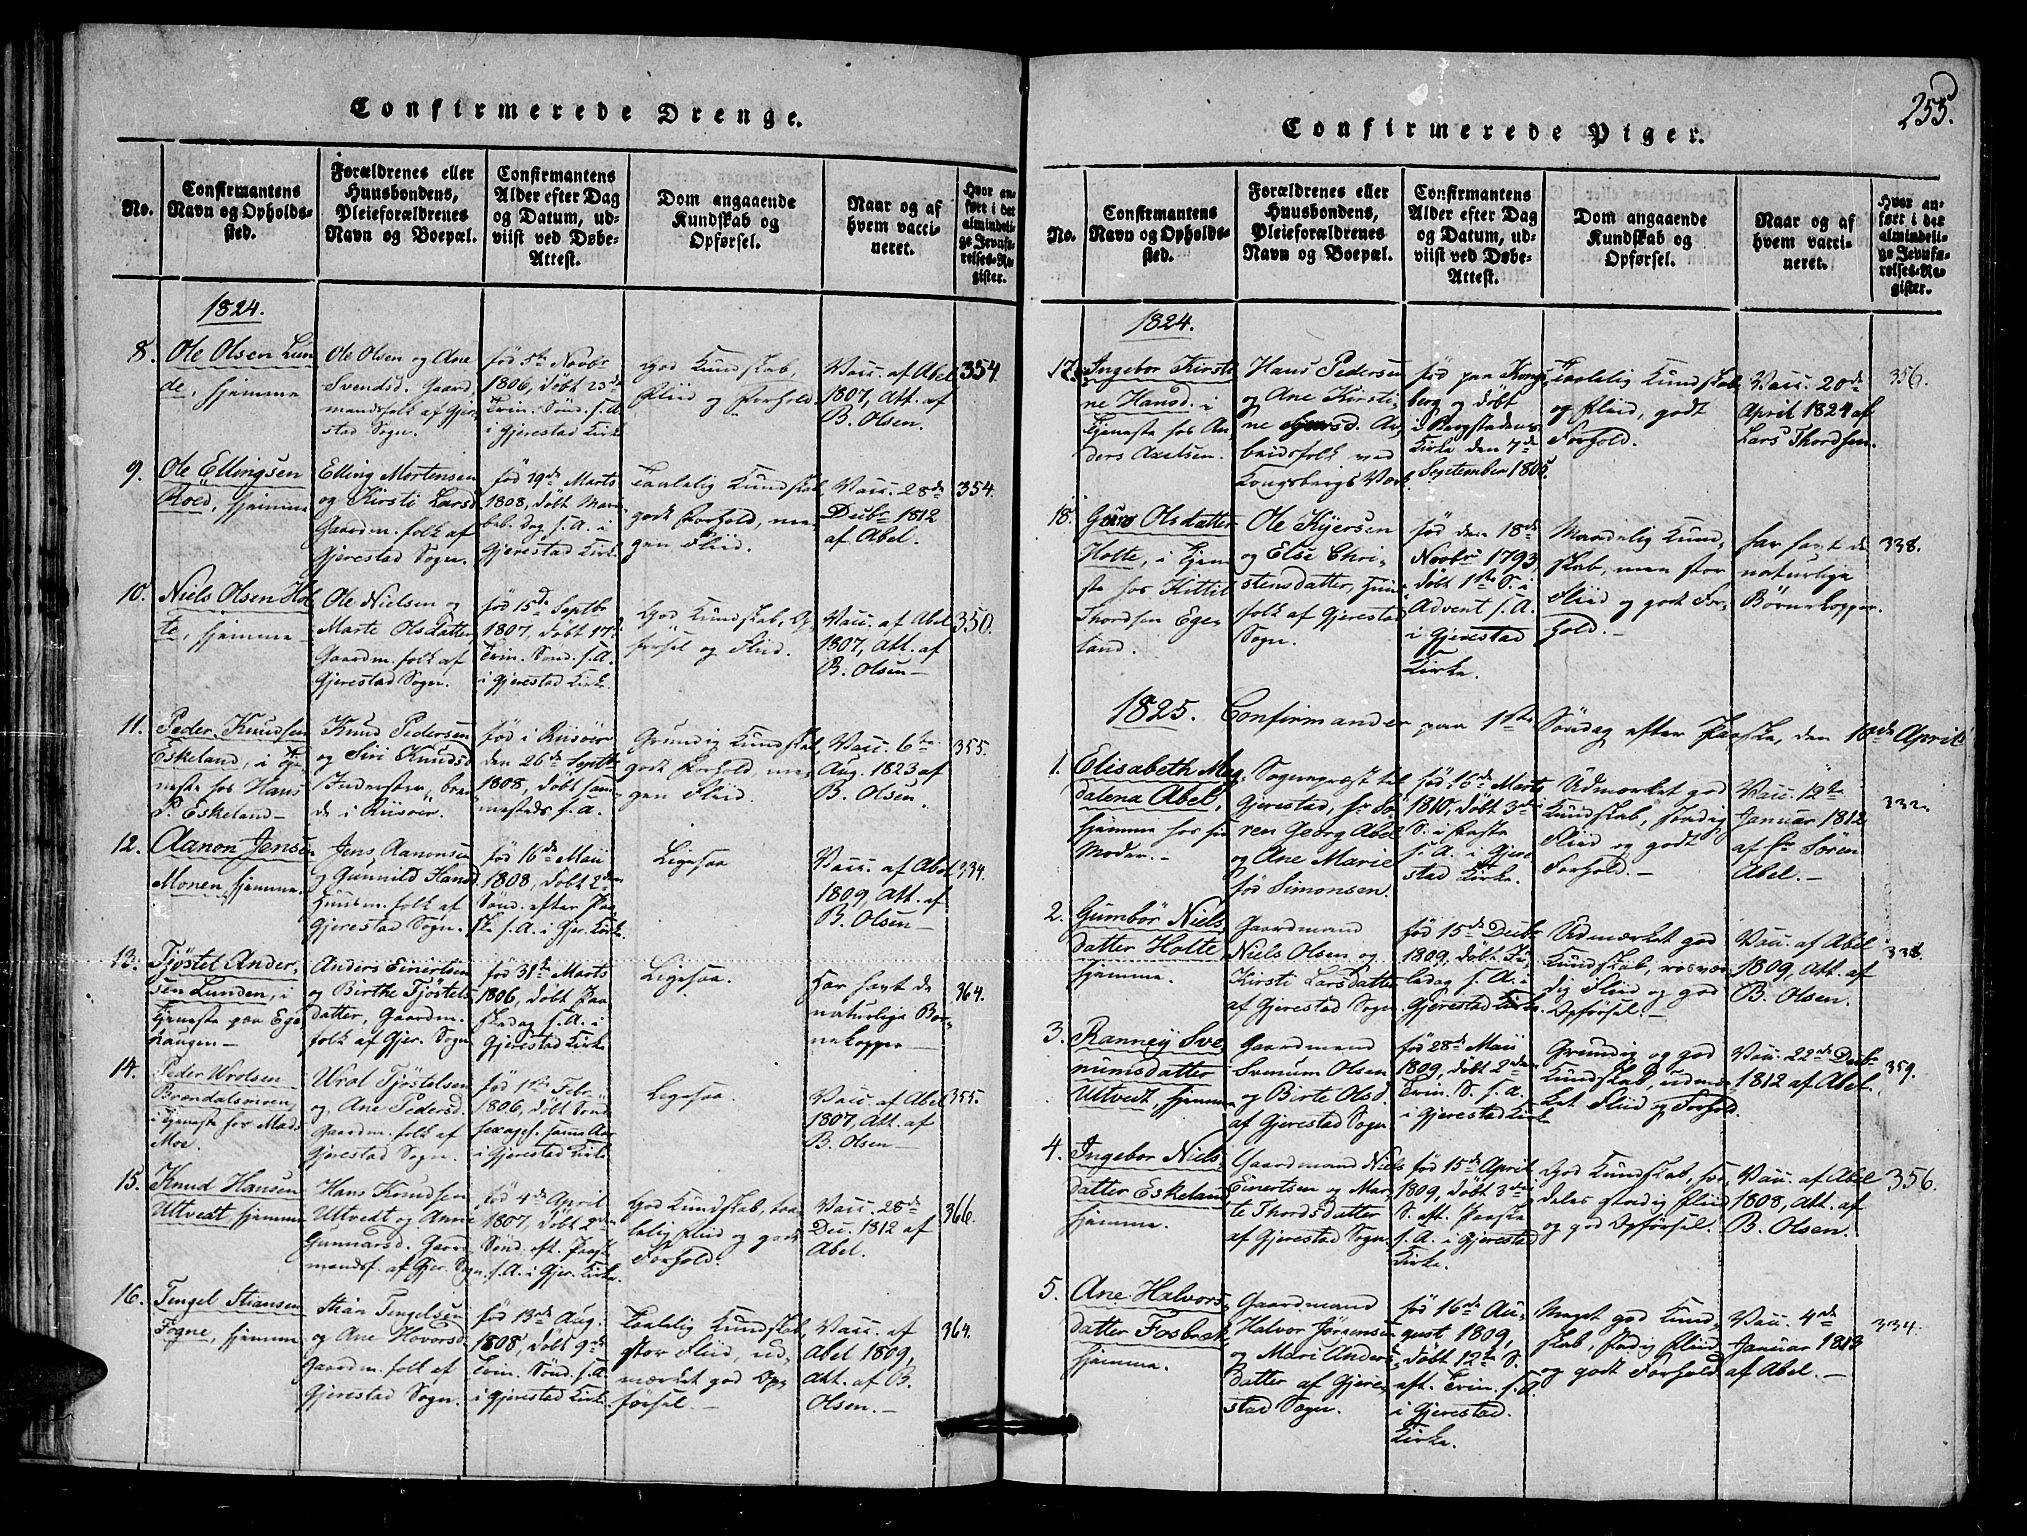 Confirmerede Drenge.
No.
Confirmantens
Navn og Opholds-
sted.
Forældrenes eller
Huusbondens,
Pleieforældrenes
Navn og Boepæl.
Confirmantens
Alder efter Dag
og Datum, ud-
viist ved Døbe-
Attest.
Dom angaaende
Kundskab og
Opførsel.
Naar og af
hvem vacci-
neret.
Hvor an-
ført i det
almindeli-
ge Jevnfø-
relses-Re-
gister.
1824.
8.
Ole Olsen Lun
de, hjemme
Ole Olsen og Ane
Svendsd. Gaard
mandsfolk af Gjer
stad Sogn.
født 5te Novbr
1806, døbt 23de
Trin. Sønd. s. A.
i Gjerestad Kirke
God Kundskab,
Fliid og Forhold.
Vacc. af Abel
1807, Att. af
B. Olsen.
354
9.
Ole Ellingsen
Röed, hjemme
Elling Mortensen
og Kirsti Larsd
Gaardm. folk af
Gjerestad Sogn.
fød 19de Marts
1808, døbt Mari
beb. Dag s. A. i
Gjerestad Kirke
Taalelig Kundskab,
godt Forhold, me-
gen Fliid.
Vacc. 28de
Decbr 1812
af Abel.
354.
10.
Niels Olsen Hol
te, hjemme
Ole Nielsen og
Marte Olsdatter
Gaardm. folk af
Gjerestad Sogn.
fød 15de Septbr
1807, døbt 17de
Trin. Sønd. s. A.
i Gjerestad Kirke
God Kundskab, Op-
førsel og Fliid.
Vacc. af Abel
1807, Att. af
B. Olsen
350.
11.
Peder Knudsen
Eskeland, i Tje
neste hos Hans
P. Eskeland
Knud Pedersen
og Siri Knudsd
Inderster, boen
de i Riisöer.
fød i Riisöer
den 26de Septbr
1808, døbt sam-
mesteds s. A.
Grundig Kundskab,
godt Forhold, me-
gen Fliid.
Vacc. 6te
Aug. 1823 af
B. Olsen.
355.
12.
Aanon Jensen
Monen, hjemme
Jens Aanonsen
og Gunnild Hansd
Huusm. folk af
Gjerestad Sogn.
fød 16de Maii
1808, døbt 2den
Sønd. efter Paa
ske s. A. i Gjer. Kirke
Ligesaa
Vacc. af Abel
1809, Att. af
B. Olsen
334.
13.
Tjöstel Ander,
sen Lunden, i
Tjeneste paa Ege
haugen
Anders Einertsen
og Birthe Tjöstels
datter, Gaardm.
folk af Gjer. Sogn
fød 31te Marts
1806, døbt Paa
skedag s. A. i
Gjerestad Kirke
Ligesaa.
Har havt de
naturlige Bør-
nekopper
364.
14.
Peder Wrolsen
Brøndalsmoen,
i Tjeneste hos Mads
Moe.
Wrol Tjöstelsen
og Ane Pedersd.
Gaardm. folk af
Gjerestad Sogn.
fød 1te Febr
1806, døbt Sønd
sexages. samme Aar
i Gjerestad Kirke
Ligesaa.
Vacc. af Abel
1807, Att. af
B. Olsen
355.
15.
Knud Hansen
Ultvedt hjemme
Hans Knudsen
Ultvedt og Anne
Gunnarsd. Gaard
mandsf. af Gjer. Sogn
fød 4de April
1807, døbt 2den
Sønd. eft. Paaske
s. A. i Gjer. Kirke.
God Kundskab, taa
lelig Fliid og godt
Forhold.
Vacc. 28de
Dec. 1812 af
Abel.
366.
16.
Tengel Stiansen
Fogne, hjemme
Stian Tengelsen
og Ane Hovorsd.
Gaardm. folk af
Gjerestad Sogn.
fød 13de Aug.
1808, døbt 9de
Trin. Sønd. s. A.
i Gjerestad Kirke.
Taalelig Kundskab,
stor Fliid, ud,
mærket god Op,
førsel.
Vacc. af
Abel 1809,
Att. af B.
Olsen.
364.
255.
Confirmerede Piger.
No.
Confirmantens
Navn og Opholds-
sted.
Forældrenes eller
Huusbondens,
Pleieforældrenes
Navn og Boepæl.
Confirmantens
Alder efter Dag
og Datum, ud-
viist ved Døbe-
Attest.
Dom angaaende
Kundskab og
Opførsel.
Naar og af
hvem vacci-
neret.
Hvor an-
ført i det
almindeli-
ge Jevnfø-
relses-Re-
gister.
1824.
17.
Ingebor Kirsti
ne Hansd. i
Tjeneste hos An-
ders Aaelsen.
Hans Pedersen
og Ane Kirsti-
ne Ar
beidsfolk ved
Kongsbergs Værk.
fød paa Kongs
berg og døbt
i Bergstadens
Kirke den 7de
September 1805.
Taalelig Kundskab
og Fliid, godt
Forhold.
Vacc. 20de
April 1824 af
Lars Thordsen.
356.
18.
Guro Olsdatter
Holte, i Tjene
ste hos Kittil
Thordsen Ege-
land.
Ole Kjersen
og Else Chri-
stensdatter, Huus
folk af Gjerestad
Sogn.
fød den 18de
Novbr 1793,
døbt 1ste S. i
Advent s. A.
i Gjerestad
Kirke.
Maadelig Kund,
skab, men stor
Fliid og godt For-
hold.
har havt de
naturlige
Børnekopper.
338.
1825. Confirmander paa 1ste Søndag efter Paaske, den 10de April
1.
Elisabeth Mag
dalena Abel,
hjemme hos sin
Moder.
Sognepræst til
Gjerestad, Hr Sö-
ren Georg Abel
og Ane Marie
fød Simonsen.
fød 16de Marts
1810, døbt 3de
S. i Faste
s. A. i Gjere-
stad Kirke.
Udmærket god
Kundskab, stadig
Fliid og godt
Forhold.
Vacc. 12te
Januar 1812
af Hr Sören
Abel.
332.
2.
Gumbör Niels
datter Holte,
hjemme.
Gaardmand
Niels Olsen og
Kirsti Larsdatter
af Gjerestad Sogn
fød 15de Decbr
1809, døbt Ju-
ledag s. A. i
Gjerestad Kirke.
Udmærket god
Kundskab, rosvær
dig Fliid og god
Opførsel.
Vacc. af Abel
1809, Att. af
B. Olsen.
338.
3.
Ranney Sve
numsdatter
Ultvedt, hjemme
Gaardmand
Svenum Olsen
og Birte Olsd.
af Gjerestad Sogn
fød 28de Maii
1809, døbt 2den
Trin. S. s. A.
i Gjerestad Kirke
Grundig og god
Kundskab, udmær
ket Fliid og Forhold.
Vacc. 22de Decbr
1812 af Abel.
359.
4.
Ingebor Niels
datter Eskeland
hjemme.
Gaardmand Niels
Einertsen og Mar
te Thordsdatter
af Gjerestad Sogn.
fød 15de April
1809, døbt 3die
S. eft. Paaske
s. A. i Gjerestad
Kirke.
God Kundskab, frem-
deles stadig Fliid
og god Opførsel.
Vacc. af Abel
1808, Att. af
B. Olsen.
356.
5.
Ane Halvors,
datter Fosbræk
hjemme.
Gaardmand
Halvor Jørgensen
og Mari Anders
datter af Gjere
stad Sogn.
fød 16de Au-
gust 1809,
døbt 12te S.
eft. Trin. s. A.
i Gjerestad
Kirke.
Meget god Kund,
skab, stadig Fliid
og godt Forhold
Vacc. 4de
Januar 1813
af Abel.
334.